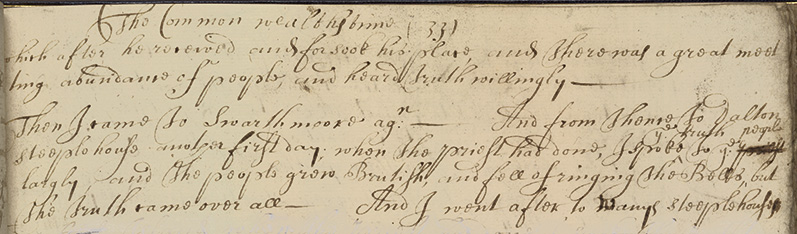 The Common wealths time (33)
which after he received and forsook his place, and there was a great meet
ting abundance of people, and heard truth willingly —
Then I came to Swarthmoore agn: — And from thence to Dalton
steeplehouse another first day: when the priest had done, I spoke ye truth to ye people
largly, and the people grew Brutish, and fell of ringing the Bells, but
the truth came over all — And I went after to many steeplehouses